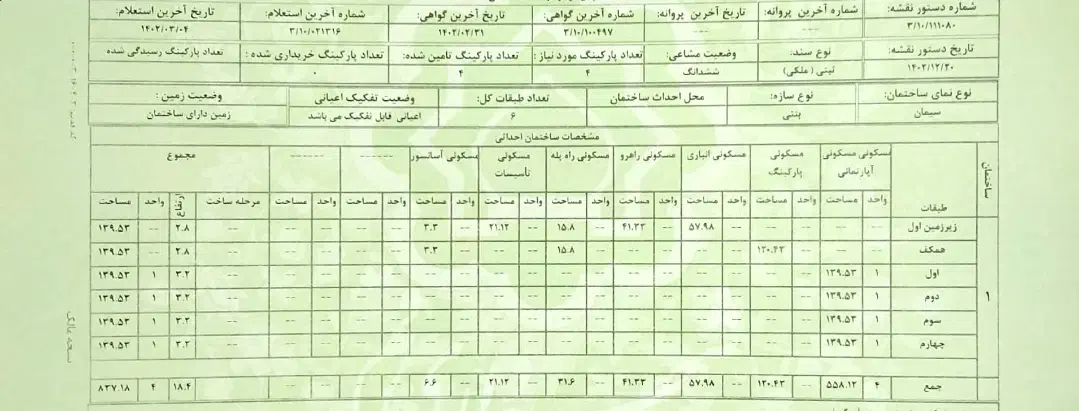 شماره دستور نقشه: شماره آخرین پروانه: تاریخ آخرین پروانه: شماره آخرین گواهی: تاریخ آخرین گواهی: شماره آخرین استعلام: تاریخ آخرین استعلام:
۳/۱۰/۱۱۱۰۸۰ --- --- ۳/۱۰/۱۰۰۴۹۷ ۱۴۰۲/۰۲/۳۱ ۳/۱۰/۰۲۱۳۱۶ ۱۴۰۲/۰۳/۰۴
تاریخ دستور نقشه: نوع سند: وضعیت مشاعی: تعداد پارکینگ مورد نیاز: تعداد پارکینگ تامین شده: تعداد پارکینگ خریداری شده : تعداد پارکینگ رسیدگی شده
۱۴۰۲/۱۲/۲۰ ثبتی (ملکی) ششدانگ ۴ ۴ ۰
نوع نمای ساختمان: نوع سازه: محل احداث ساختمان تعداد طبقات کل: وضعیت تفکیک اعیانی وضعیت زمین :
سیمان بتنی ۶ اعیانی قابل تفکیک می باشد زمین دارای ساختمان
مشخصات ساختمان احداثی
ساختمان طبقات مسکونی مسکونی آپارتمانی مسکونی پارکینگ مسکونی انباری مسکونی راهرو مسکونی راه پله مسکونی تأسیسات مسکونی آسانسور ------ ------ مجموع
واحد مساحت واحد مساحت واحد مساحت واحد مساحت واحد مساحت واحد مساحت واحد مساحت واحد مساحت واحد مساحت مرحله ساخت ارتفاع واحد مساحت
زیرزمین اول -- -- -- -- -- ۵۷.۹۸ -- ۴۱.۳۳ -- ۱۵.۸ -- ۲۱.۱۲ -- ۳.۳ -- -- -- -- -- ۲.۸ -- ۱۳۹.۵۳
همکف -- -- -- ۱۲۰.۴۳ -- -- -- -- -- ۱۵.۸ -- -- -- ۳.۳ -- -- -- -- -- ۲.۸ -- ۱۳۹.۵۳
اول ۱ ۱۳۹.۵۳ -- -- -- -- -- -- -- -- -- -- -- -- -- -- -- -- -- ۳.۲ ۱ ۱۳۹.۵۳
۱ دوم ۱ ۱۳۹.۵۳ -- -- -- -- -- -- -- -- -- -- -- -- -- -- -- -- -- ۳.۲ ۱ ۱۳۹.۵۳
سوم ۱ ۱۳۹.۵۳ -- -- -- -- -- -- -- -- -- -- -- -- -- -- -- -- -- ۳.۲ ۱ ۱۳۹.۵۳
چهارم ۱ ۱۳۹.۵۳ -- -- -- -- -- -- -- -- -- -- -- -- -- -- -- -- -- ۳.۲ ۱ ۱۳۹.۵۳
جمع ۴ ۵۵۸.۱۲ -- ۱۲۰.۴۳ -- ۵۷.۹۸ -- ۴۱.۳۳ -- ۳۱.۶ -- ۲۱.۱۲ -- ۶.۶ -- -- -- -- -- ۱۸.۴ ۴ ۸۳۷.۱۸
نسخه مالک